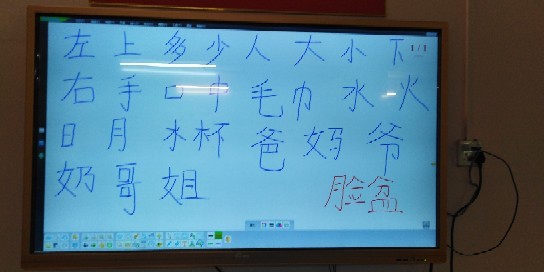 左 上 多 少 人 大 小 下
1/1
右 手 口 中 毛巾 水 火
日 月 水杯 爸 妈 爷
奶 哥 姐 脸盆